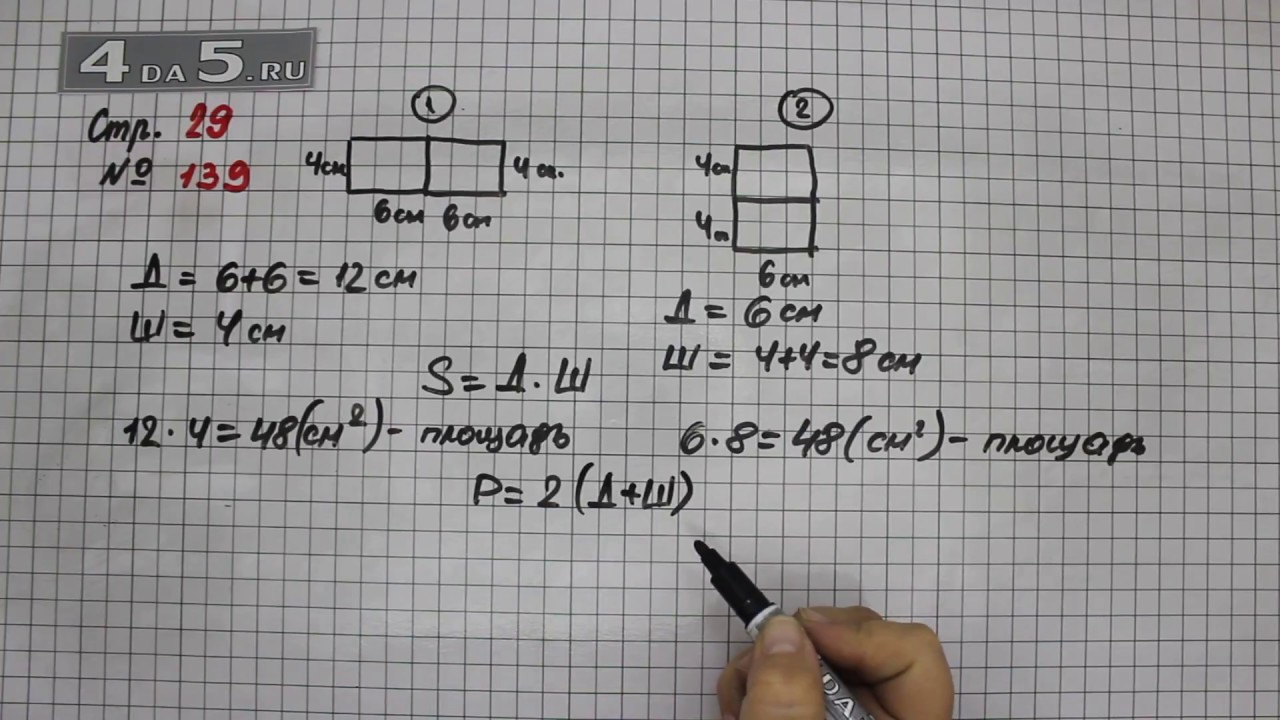 4DA5.RU
Стр. 29
№ 139
1
4см 4см.
6см 6см
Д = 6+6 = 12 см
Ш = 4 см
2
4см
4см
6см
Д = 6 см
Ш = 4+4=8 см
S = Д · Ш
12 · 4 = 48(см²) - площадь
6 · 8 = 48(см²) - площадь
P = 2 (Д+Ш)